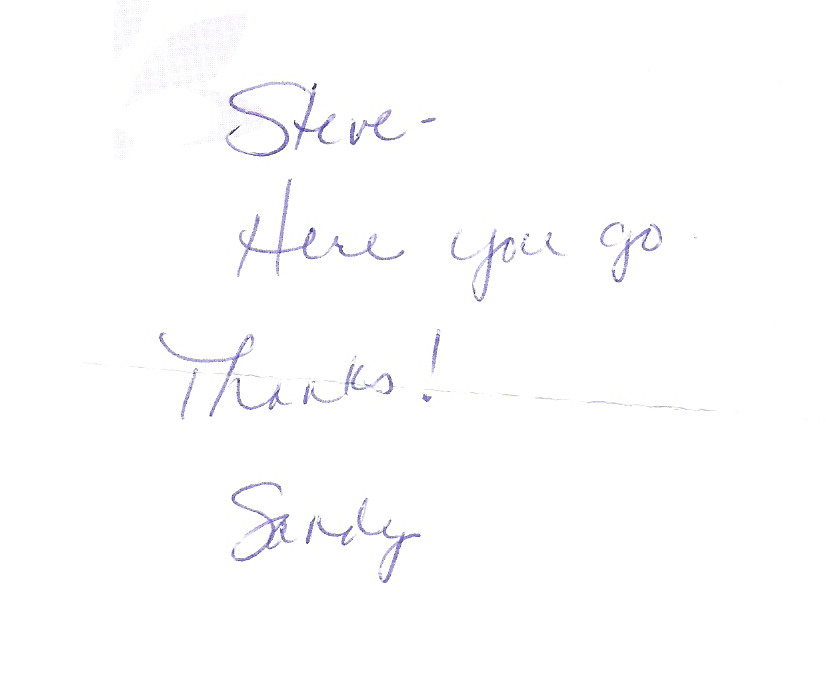 Steve-
Here you go
Thanks!
Sandy